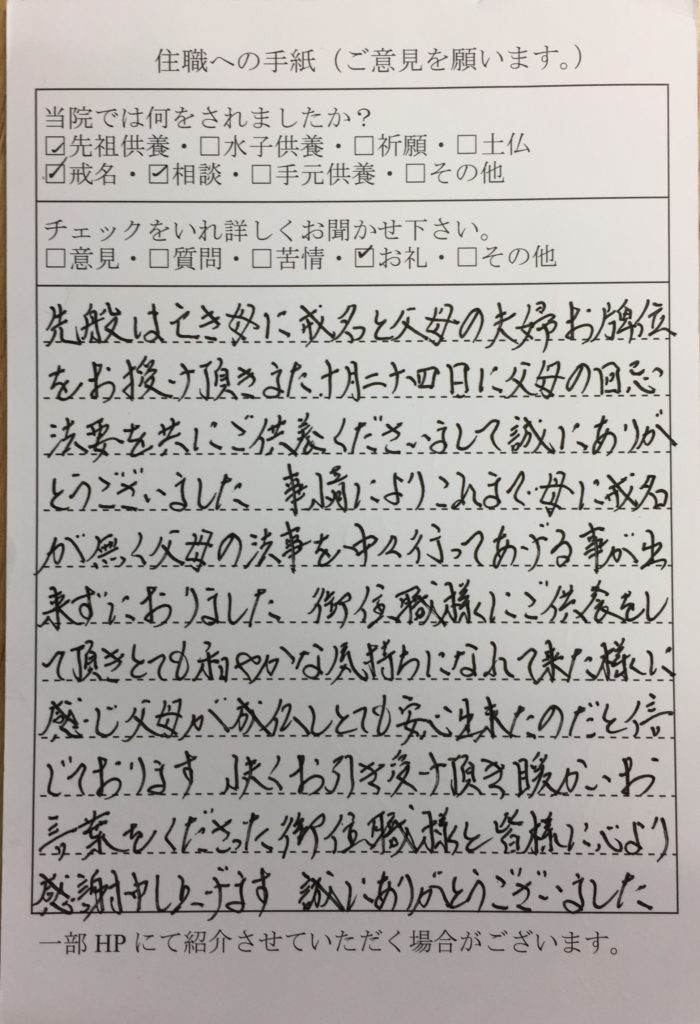 住職への手紙（ご意見を願います。）
当院では何をされましたか？
☑先祖供養・□水子供養・□祈願・□土仏
☑戒名・☑相談・□手元供養・□その他
チェックをいれ詳しくお聞かせ下さい。
□意見・□質問・□苦情・☑お礼・□その他
先般は亡き母に戒名と父母の夫婦お牌位
をお授け頂きまた十月二十四日に父母の回忌
法要を共にご供養くださいまして誠にありが
とうございました 事情によりこれまで母に戒名
が無く父母の法事を中々行ってあげる事が出
来ずにおりました 御住職様にご供養をし
て頂きとても和やかな気持ちになれて来た様に
感じ父母が成仏しとても安心出来たのだと信
じております 快くお引き受け頂き暖かいお
言葉をくださった御住職様と皆様に心より
感謝申し上げます 誠にありがとうございました
一部HPにて紹介させていただく場合がございます。